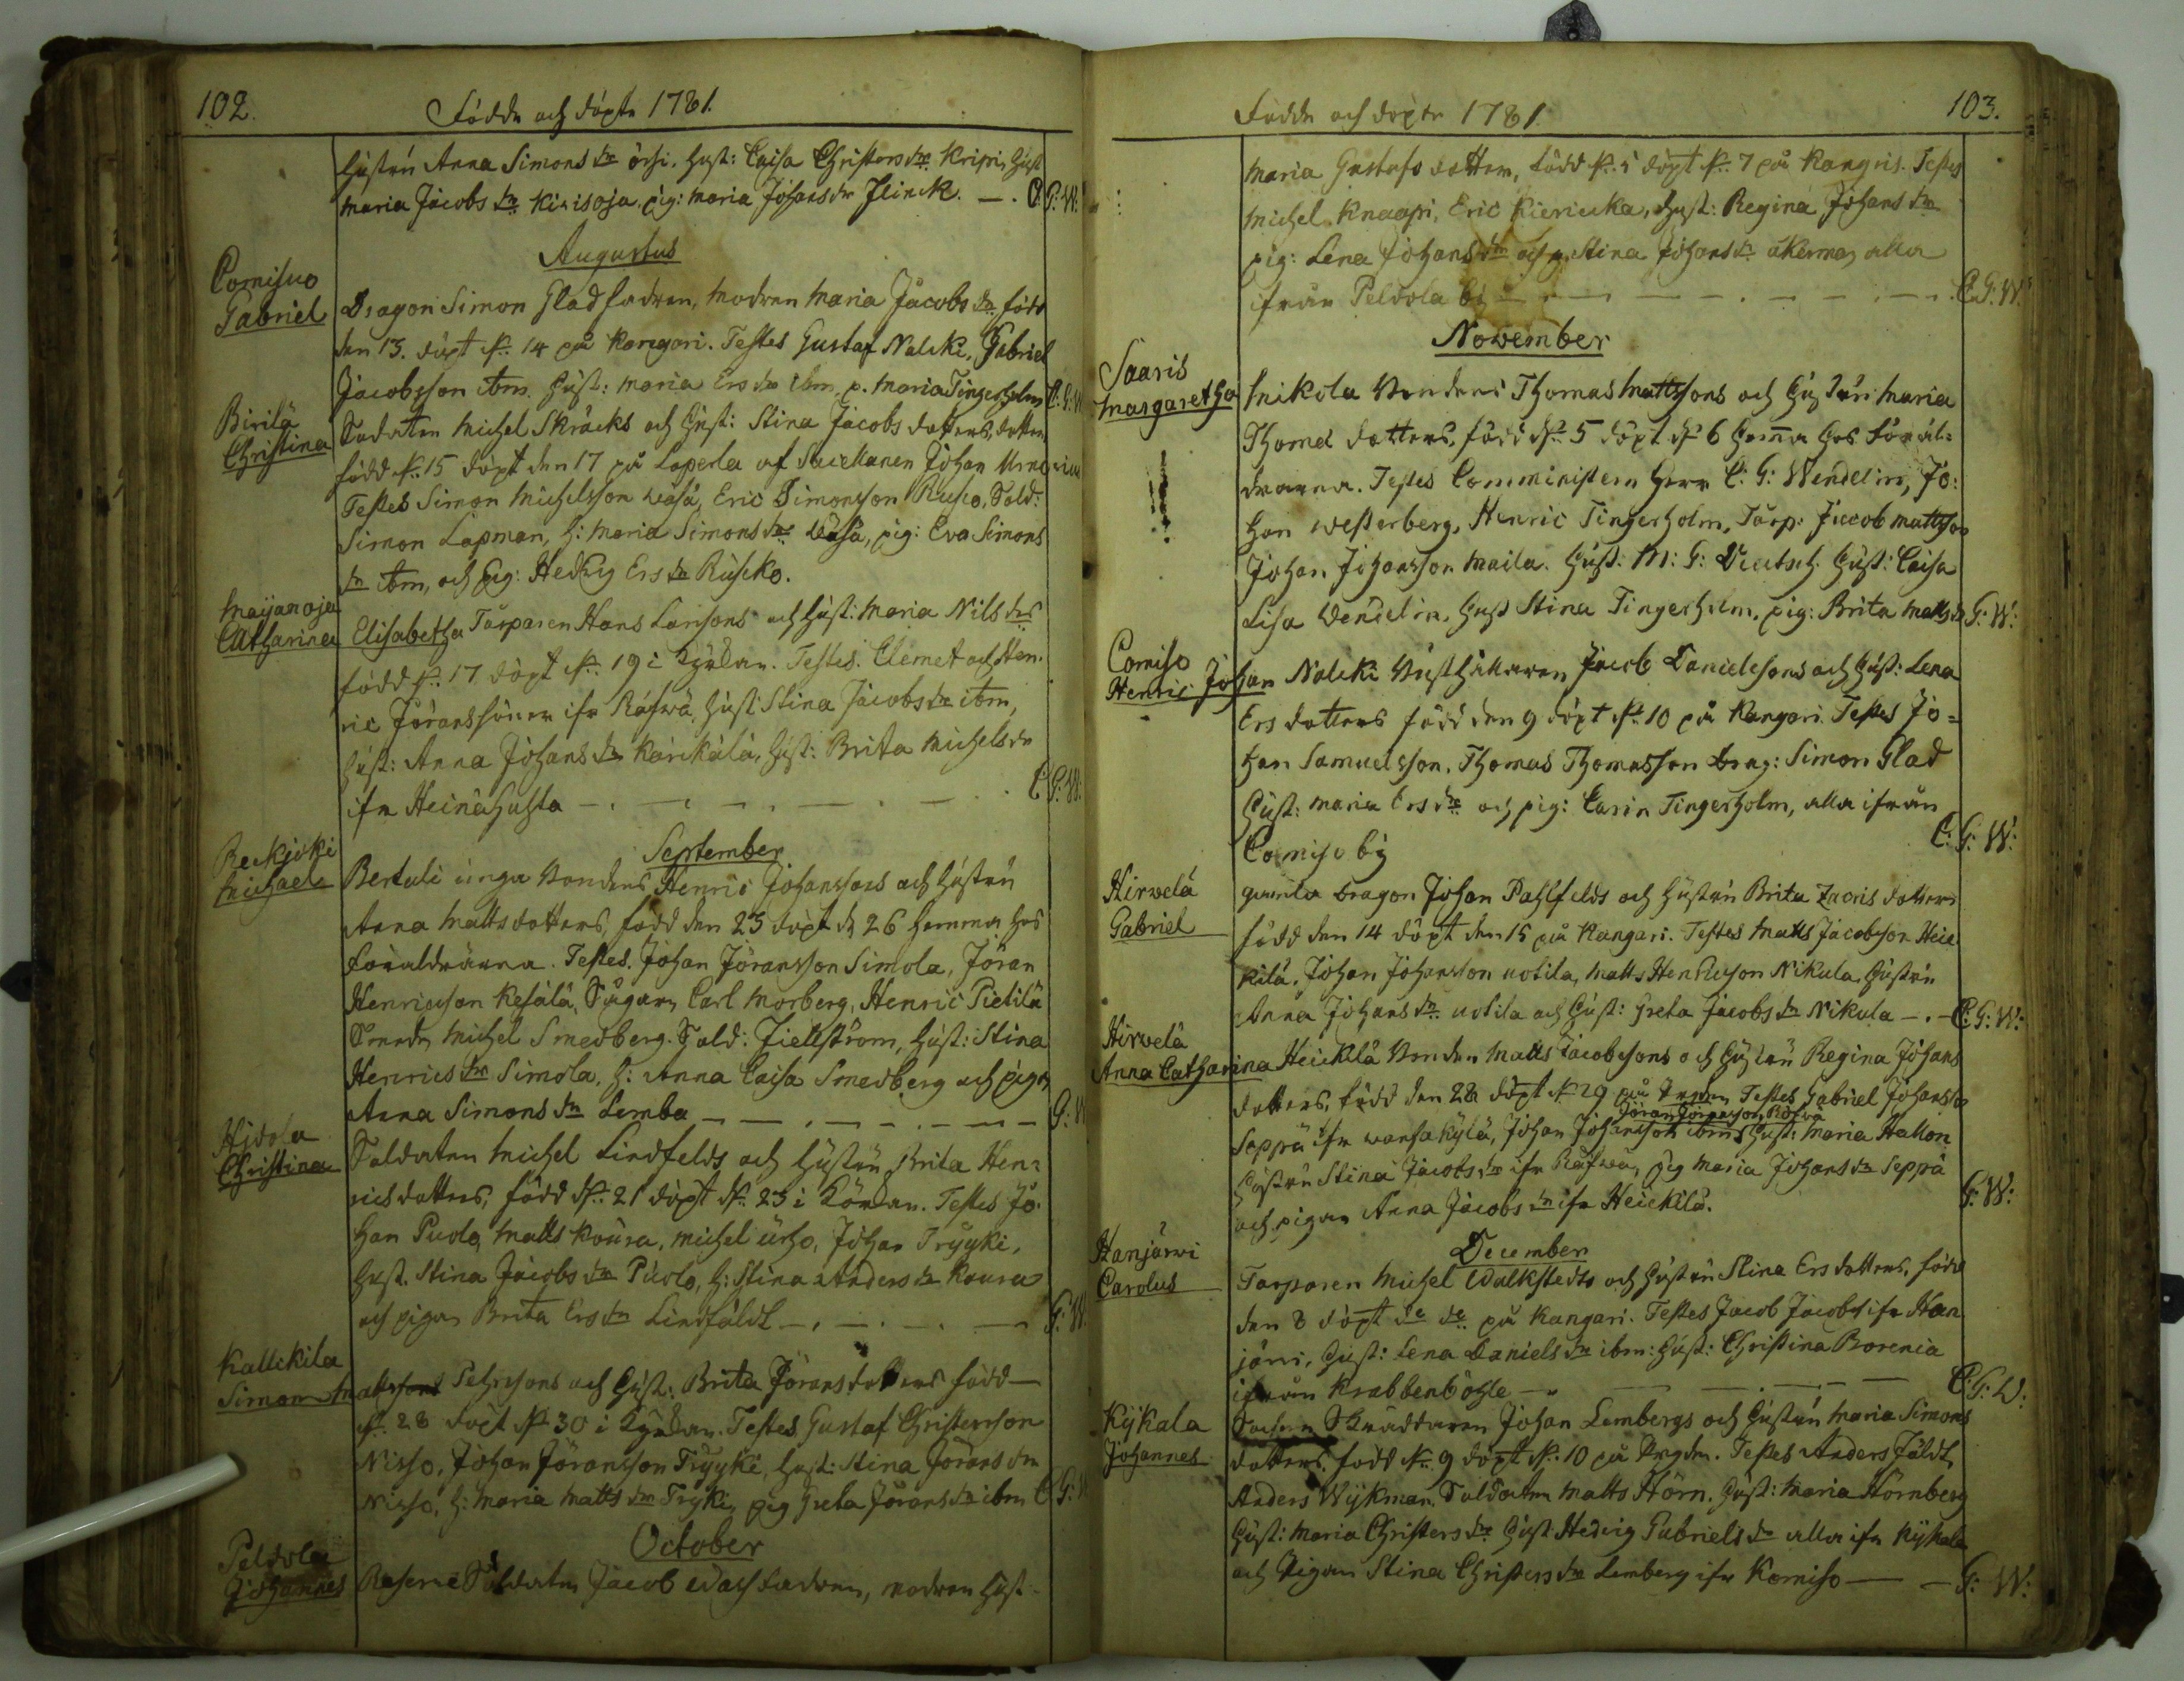 102.
Födde och döpte 1781.
Hustrun Anna Simons dr örsi. Hust: Caisa Christers dr Kripi, Hust
Maria Jacobs dr Kivisoja, pig: Maria Johans dr Flinck. C: G: W:
Augustus
Comisuo
Gabriel
Dragon Simon Glad fadren, modren Maria Jacobs dr, född
den 13. döpt d: 14 på Kangari. Testes Gustaf Nalcki, Gabriel
Jacobsson ibm. Hust: Maria Ers dr ibm, p. Maria Tingerholm C: G: W
Birilä
Christina
Soldaten Michel Skräcks och Hust: Stina Jacobs dotters, dotter
född d: 15 döpt den 17 på Laperla af Sacellanen Johan
Testes Simon Michelsson Wäsä, Eric Simonsson Rusco, Sold:
Simon Lapman, H: Maria Simons dr Wäsä, pig: Eva Simons
dr ibm, och pig: Hedvig Ers dr Ruscko.
Maijanoja
Catharina
Elisabetha Torparen Hans Larssons och Hust: Maria Nils drs
född d: 17 döpt d: 19 i Kyrkan. Testes. Clemet och Hen-
ric Jöranssöner ifr Räfwä, Hust: Stina Jacobs dr ibm,
Hust: Anna Johans dr Karikala, Hust: Brita Michels dr
ifr Heinähuhta C G: W:
September
Reckjoki
Michael
Bertuli unga Bondens Henric Johanssons och Hustrun
Anna Matts dotters, född den 25 döpt d 26 hemma hos
Föräldrarna. Testes. Johan Jöransson Simola, Jöran
Henricsson Kesälä, Carl Morberg, Henric Pietilä
Smeden Michel Smedberg. Sold: Fiellström, Hust: Stina
Henrics dr Simola, H: Anna Caisa Smedberg och pigan
Anna Simons dr Lemba G: W
Hidola
Christina
Soldaten Michel Lindfelds och Hustrun Brita Hen-
rics dotters, född d: 21 döpt d: 23 i Körkan. Testes Jo-
han Puolo, Matts Koura, Michel ürho, Johan Tryyki,
Hust. Stina Jacobs dr Puolo, H: Stina Anders dr Koura
och pigan Brita Ers dr Lindfäldt G: W
Kallckila
Simon
Mattssons Pehrssons och Hust: Brita Jörans dotters född
d: 28 döpt d: 30 i Kyrkan. Testes Gustaf Christersson
Nisso, Johan Jöransson Tryyki, Hust: Stina Jörans dr
Nisso, H: Maria Matts dr Tryki, pig Greta Jörans dr ibm C G: W
October
Peldola
Johannes
Reserve Soldaten Jacob Wass fadren, modren Hust-
103.
Födde och döpte 1781.
Maria Gustafs dotter, född d: 5 döpt d: 7 på Kangris. Testes
Michel Knaapi, Eric Kiericka, Hust: Regina Johans dr
pig: Lena Johans dr och p. Stina Johans dr åkerman alla
ifrån Peldola by C: G: W:
November
Saaris
Margaretha
Mikola Bondens Thomas Mattssons och Hustrun Maria
Thomæ dotters, född d: 5 döpt d: 6 hemma hos föräl-
drarna. Testes Comministern Herr C: G: Wendelin, Jo-
han Westerberg, Henric Tingerholm, Torp: Jacob Mattsson
Johan Johansson Maila. Hust: M: G: Hust: Caisa
Lisa Wendelin, Hust Stina Tingerholm, pig: Brita Matts dr G: W:
Comiso
Henric Johan
Nalcki Rusthållaren Jacob Danielssons och Hust: Lena
Ers dotters född den 9 döpt d: 10 på Kangari. Testes Jo-
han Samuelsson, Thomas Thomasson Drag: Simon Glad
Hust: Maria Ers dr och pig: Carin Tingerholm, alla ifrån
Comiso by C: G: W:
Hirwelä
Gabriel
gamla Dragon Johan Pahlfelds och Hustrun Brita Zacris dotters
född den 14 döpt den 15 på Kangari. Testes Matts Jacobsson Heic-
kilä. Johan Johansson Uotila, Matts Henricsson Nikula, Hustrun
Anna Johans dr Uotila och Hust: Greta Jacobs dr Nikula C: G: W:
Hirvelä
Anna Catharina
Heickilä Bonden Matts Jacobssons och Hustrun Regina Johans
dotters, född den 28 döpt d: 29 på Testes Gabriel Johansson
Jöran Jöransson Räfwä
Seppä ifr Wansakylä, Johan Johansson ibm Hust: Maria Hallon
Hustrun Stina Jacobs dr ifr Räfwä, pig Maria Johans dr Seppä
och pigan Anna Jacobs dr ifr Heickilä. G: W:
December
Hanjärwi
Carolus
Torparen Michel Walkstedts och Hustrun Stina Ers dotters, född
den 8 döpt de do på Kangari. Testes Jacob Jacobss ifr Han
järvi, Hust: Lena Daniels dr ibm: Hust: Christina Borenia
ifrån Krabbenböhle C: G: W:
Kykala
Johannes
Sochen Skräddaren Johan Lembergs och Hustrun Maria Simons
dotters, född d: 9 döpt d: 10 på Testes Anders Fäldt,
Anders Wykman, Soldaten Matts Hörn, Hust: Maria Hornberg
Hust: Maria Christers dr Hust. Hedvig Gabriels dr alla ifr Kykala
och Pigan Stina Christers dr Lemberg ifr Komiso G: W: